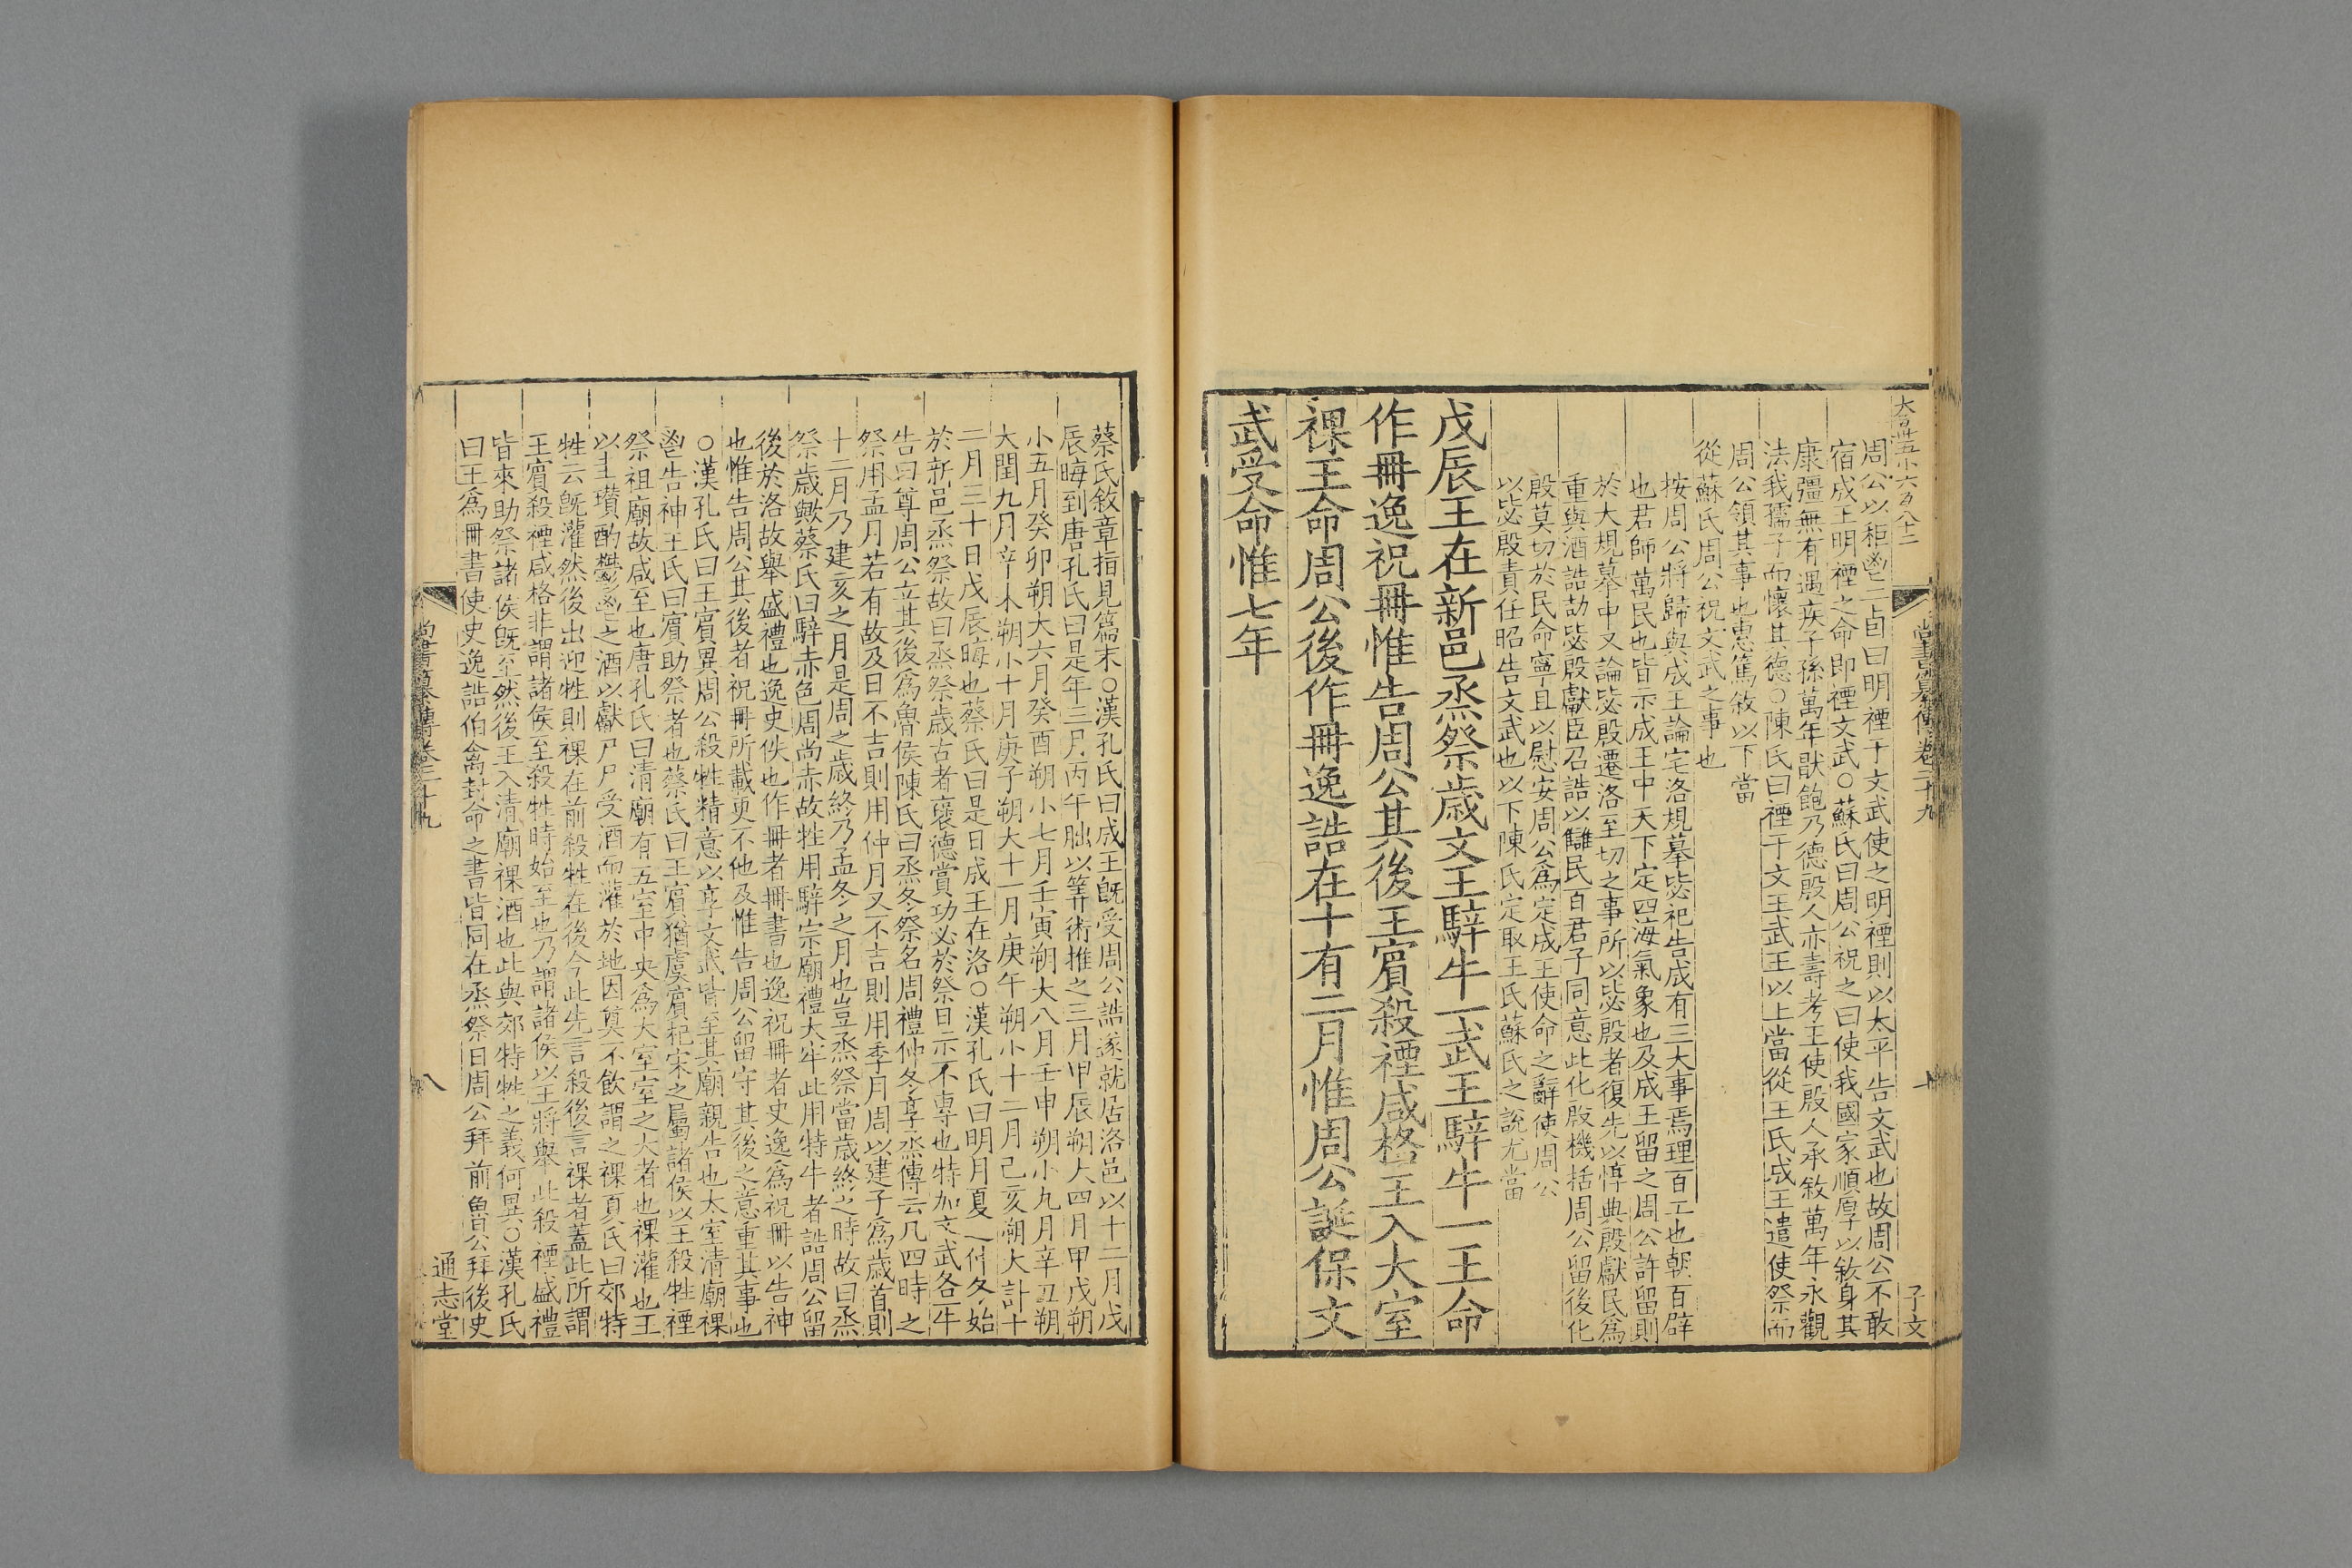 尚書纂傳卷二十九
子文
周公以秬鬯二卣曰明禋于文武使之明禋則以太平告文武也故周公不敢
宿成王明禋之命即禋文武○蘇氏曰周公祝之曰使我國家順厚以敘身其
康彊無有遇疾子孫萬年猒飽乃德殷人亦壽考王使殷人承敘萬年永觀
法我孺子而懷其德○陳氏曰禋于文王武王以上當從王氏成王遣使祭而
周公領其事也惠篤敘以下當
從蘇氏周公祝文武之事也
按周公將歸與成王論宅洛規摹毖祀告成有三大事焉理百工也朝百辟
也君師萬民也皆示成王中天下定四海氣象也及成王留之周公許留則
於大規摹中又論毖殷遷洛至切之事所以毖殷者復先以惇典殷獻民為
重與酒誥劼毖殷獻臣召誥以讎民百君子同意此化殷機括周公留後化
殷莫切於民命寧且以慰安周公為定成王使命之辭使周公
以毖殷責任昭告文武也以下陳氏定取王氏蘇氏之說尤當
戊辰王在新邑烝祭歲文王騂牛一武王騂牛一王命
作冊逸祝冊惟告周公其後王賓殺禋咸格王入大室
祼王命周公後作冊逸誥在十有二月惟周公誕保文
武受命惟七年
蔡氏敘章指見篇末○漢孔氏曰成王既受周公誥遂就居洛邑以十二月戊
辰晦到唐孔氏曰是年三月丙午朏以筭術推之三月甲辰朔大四月甲戌朔
小五月癸卯朔大六月癸酉朔小七月壬寅朔大八月壬申朔小九月辛丑朔
大閏九月辛未朔小十月庚子朔大十一月庚午朔小十二月己亥朔大計十
二月三十日戊辰晦也蔡氏曰是日成王在洛○漢孔氏曰明月夏之仲冬始
於新邑烝祭故曰烝祭歲古者襃德賞功必於祭日示不專也特加文武各一牛
告曰尊周公立其後為魯侯陳氏曰烝冬祭名周禮仲冬享烝傳云凡四時之
祭用孟月若有故及日不吉則用仲月又不吉則用季月周以建子為歲首則
十二月乃建亥之月是周之歲終乃孟冬之月也豈烝祭當歲終之時故曰烝
祭歲歟蔡氏曰騂赤色周尚赤故牲用騂宗廟禮大牢此用特牛者誥周公留
後於洛故舉盛禮也逸史佚也作冊者冊書也逸祝冊者史逸為祝冊以告神
也惟告周公其後者祝冊所載更不他及惟告周公留守其後之意重其事也
○漢孔氏曰王賓異周公殺牲精意以享文武皆至其廟親告也太室清廟祼
鬯告神王氏曰賓助祭者也蔡氏曰王賓猶虞賓杞宋之屬諸侯以王殺牲禋
祭祖廟故咸至也唐孔氏曰清廟有五室中央為大室室之大者也祼灌也王
以圭瓚酌鬱鬯之酒以獻尸尸受酒而灌於地因奠不飲謂之祼頁氏曰郊特
牲云既灌然後出迎牲則祼在前殺牲在後今此先言殺後言祼者蓋此所謂
王賓殺禋咸格非謂諸侯至殺牲時始至也乃謂諸侯以王將舉此殺禋盛禮
皆來助祭諸侯既至然後王入清廟祼酒也此與郊特牲之義何異○漢孔氏
曰王為冊書使史逸誥伯禽封命之書皆同在烝祭日周公拜前魯公拜後史
尚書纂傳卷二十九
八
通志堂